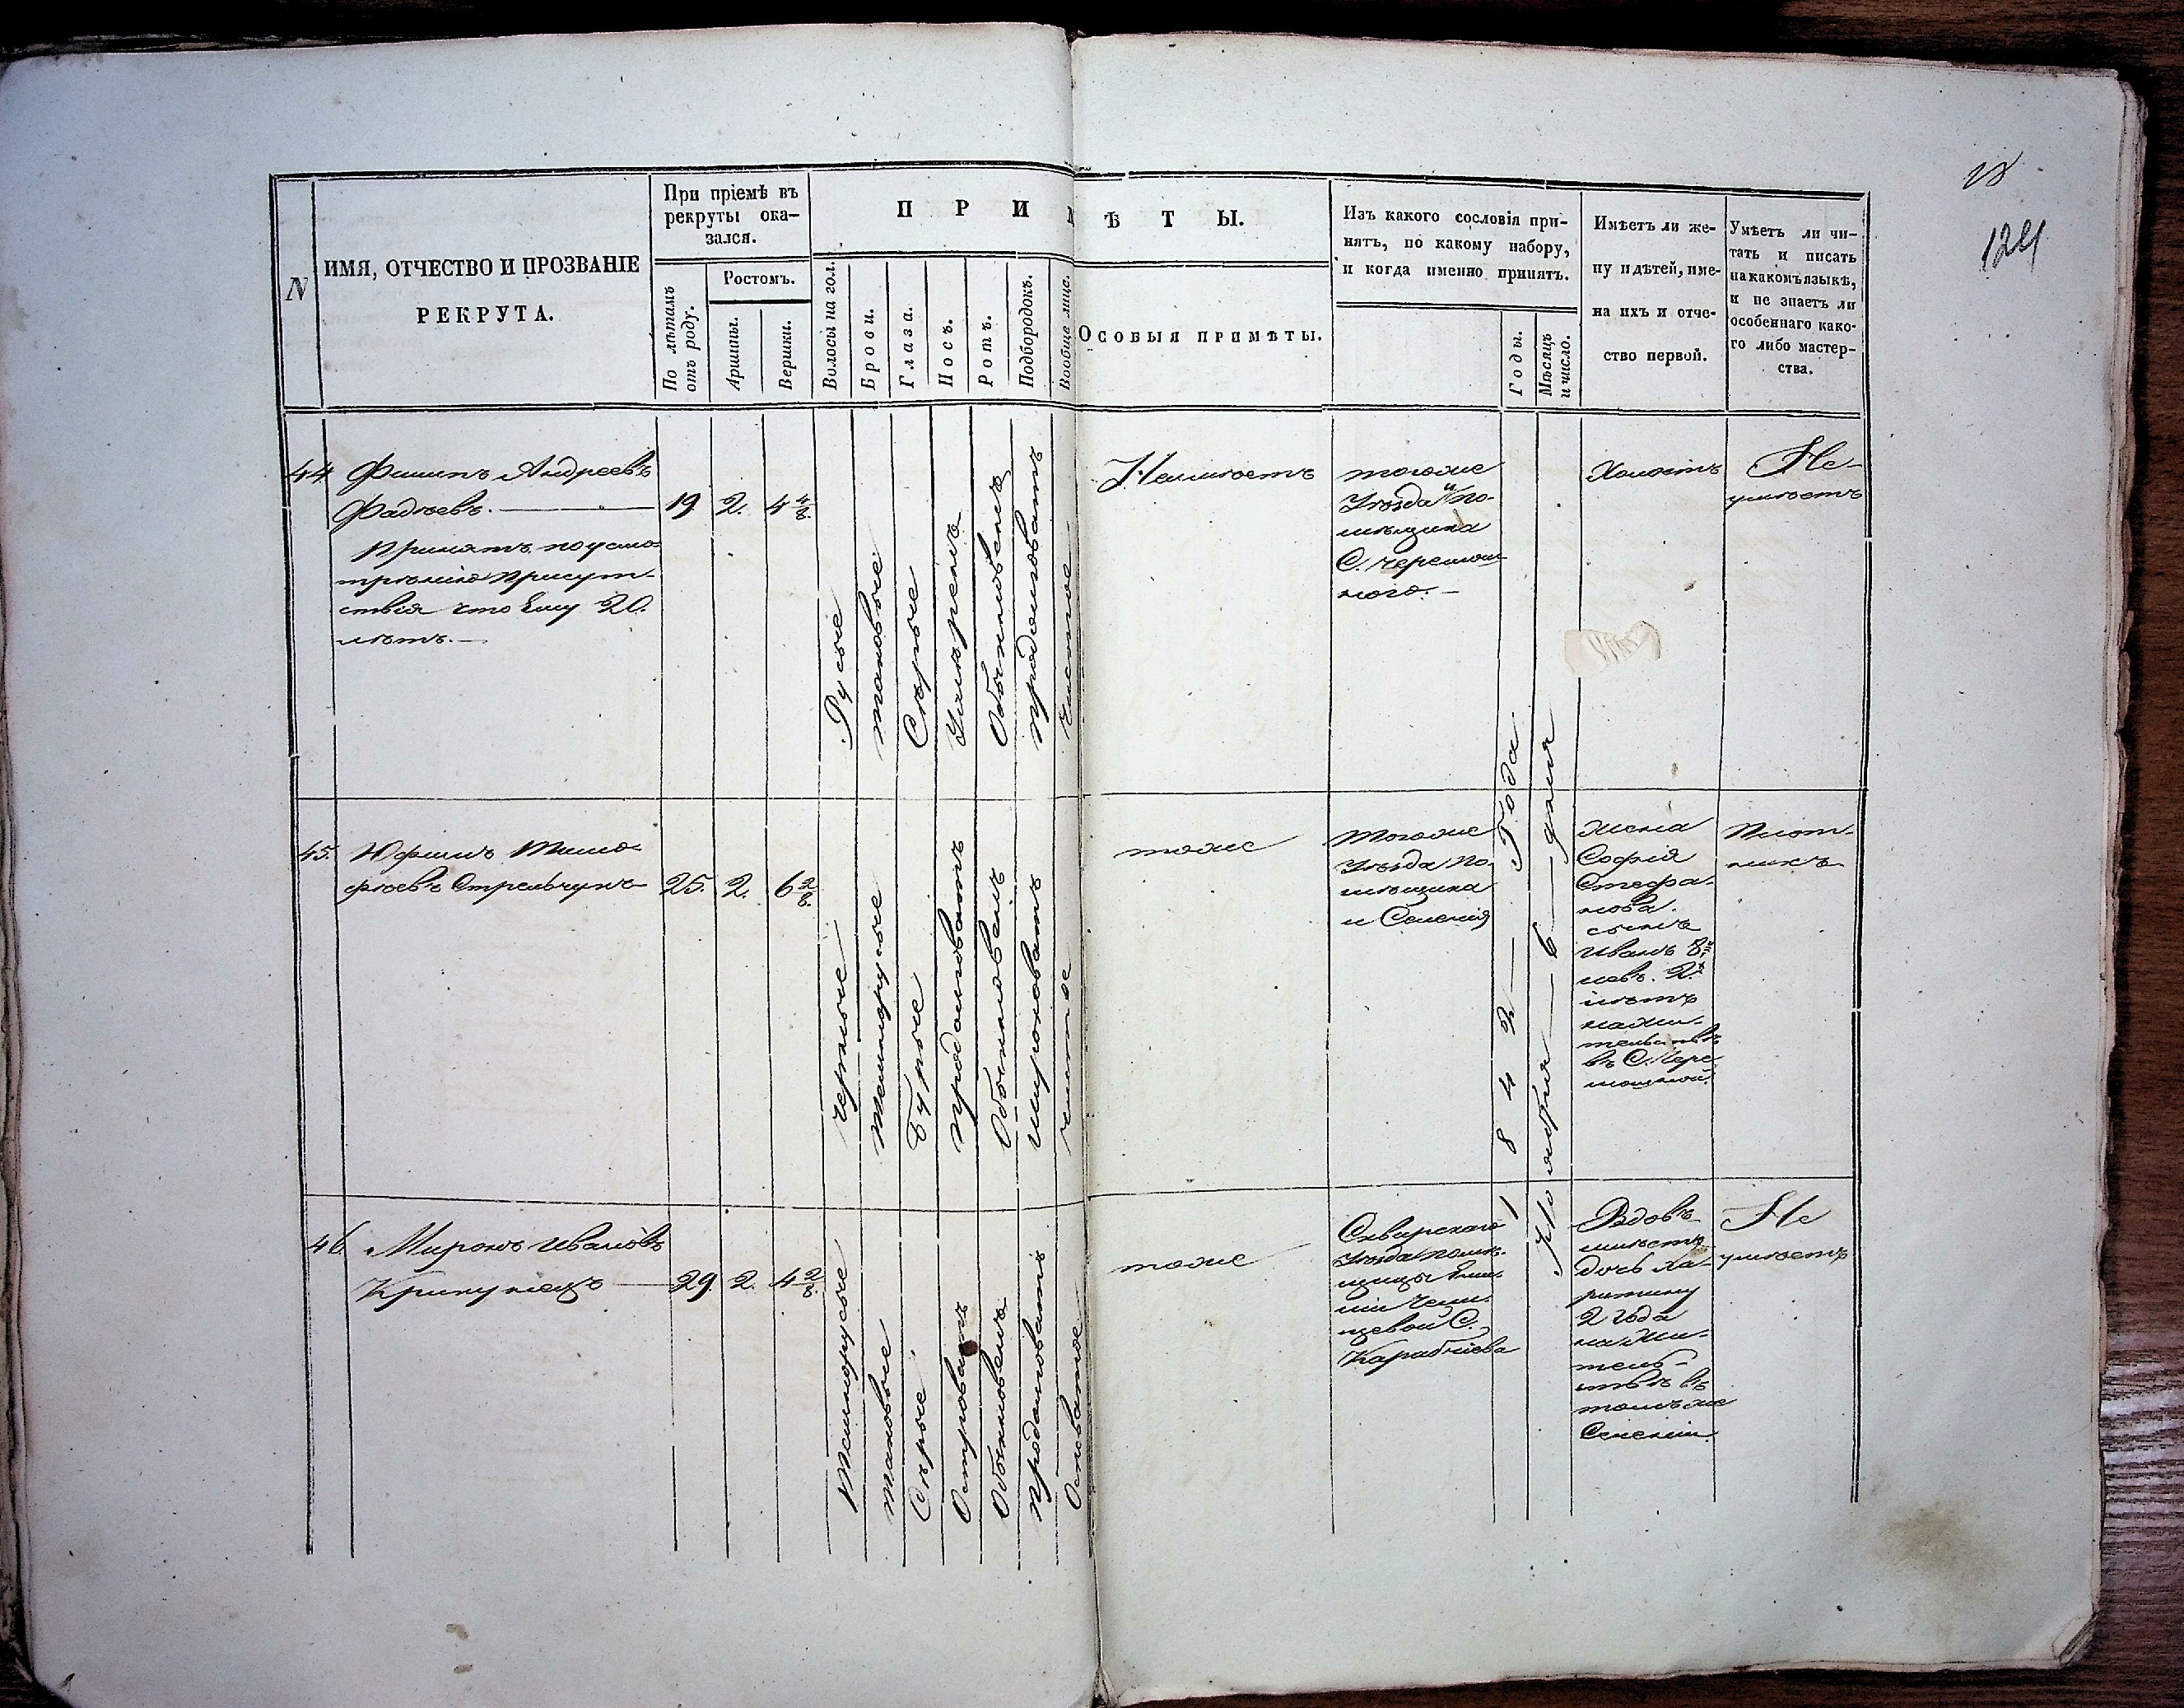 28
124
N
ИМЯ, ОТЧЕСТВО И ПРОЗВАНІЕ
РЕКРУТА.
При пріемѣ въ
рекруты ока-
зался.
По лѣтамъ
отъ роду.
Ростомъ.
Аршины.
Вершки.
ПРИМѢТЫ.
Волосы на гол.
Брови.
Глаза.
Носъ.
Ротъ.
Подбородокъ.
Вообще лице.
ОСОБЫЯ ПРИМѢТЫ.
Изъ какого сословія при-
нятъ, по какому набору,
и когда именно принятъ.
Годы.
Мѣсяцъ
и число.
Имѣетъ ли же-
ну и дѣтей, име-
на ихъ и отче-
ство первой.
Умѣетъ ли чи-
тать и писать
на какомъ языкѣ,
и не знаетъ ли
особеннаго како-
го либо мастер-
ства.
44
Филипъ Андреевъ
Фадѣевъ.
Принятъ по усмо-
трѣнію Присут-
ствія что ему 20.
лѣтъ.
19
2.
4 4/8.
Русые
таковые
Сѣрые
Умѣренъ
Обыкновенъ
продолговатъ
Чистое
Неимѣетъ
тогоже
Уѣзда и по-
мѣщика
С. Черемош-
ного.
Холостъ
Не
умѣетъ
45.
Юфимъ Тимо-
фѣевъ Стрельчукъ
25.
2.
6 2/8.
Черные
темнорусые
Бурые
продолговатъ
Обыкновенъ
широковатъ
чистое
тоже
Тогоже
Уѣзда по-
мѣщика
и Селенія
1842 Года
Ноября 6 дня
жена
Софія
Стефа-
нова.
сынъ
Иванъ
2
лѣтъ
на жи-
тельствѣ
въ С. Чере-
мошной.
Плот-
никъ
46.
Миронъ Ивановъ
29.
2.
4 2/8.
Темнорусые
таковые
Сѣрые
Островатъ
Обыкновенъ
продолговатъ
Осповатое
тоже
Сквирскаго
Уѣзда помѣ-
щицы
С.
Карабчіева
Вдовъ
имѣетъ
дочь Ха-
ритину
2 года
на жи-
тель-
ствѣ въ
томъ же
Селеніи.
Не
умѣетъ